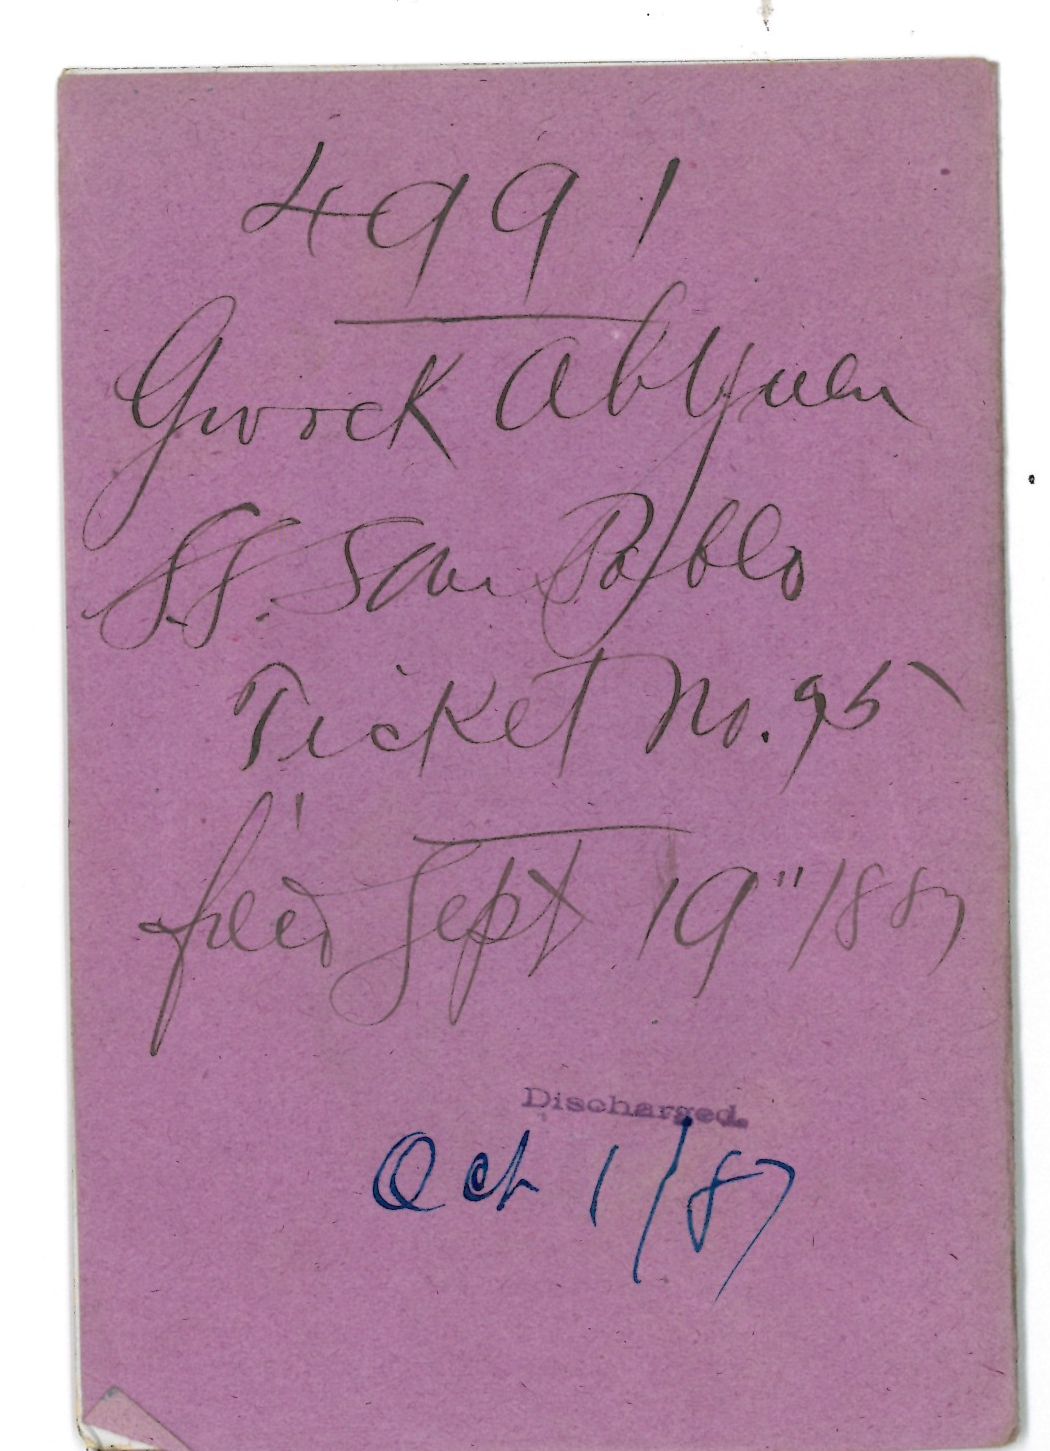 4991
Gwock Ah Yuen
S.S. San Pablo
Ticket No. 95
filed Sept 19" 1887
Discharged.
Oct 1/87